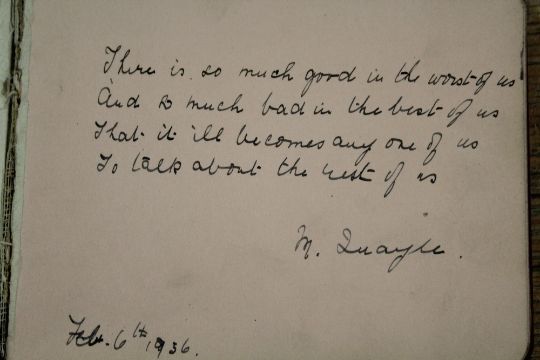 There is so much good in the worst of us
And so much bad in the best of us
That it ill becomes any one of us
To talk about the rest of us
M. Quayle.
Feb. 6th, 1936.